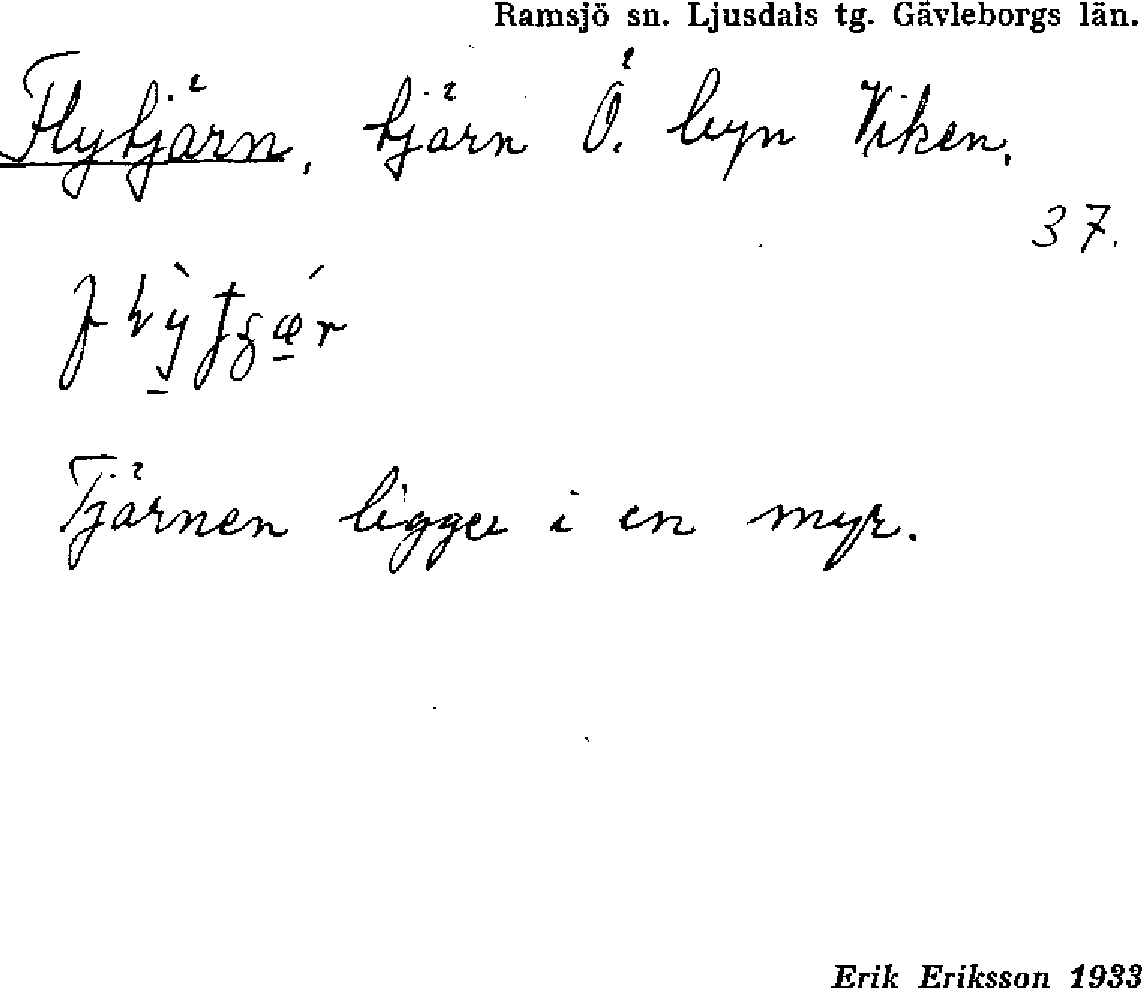 Ramsjö sn. Ljusdals tg. Gävleborgs län.
Flytjärn, tjärn Ö. byn Viken.
37.
Tjärnen ligger i en myr.
Erik Eriksson 1933